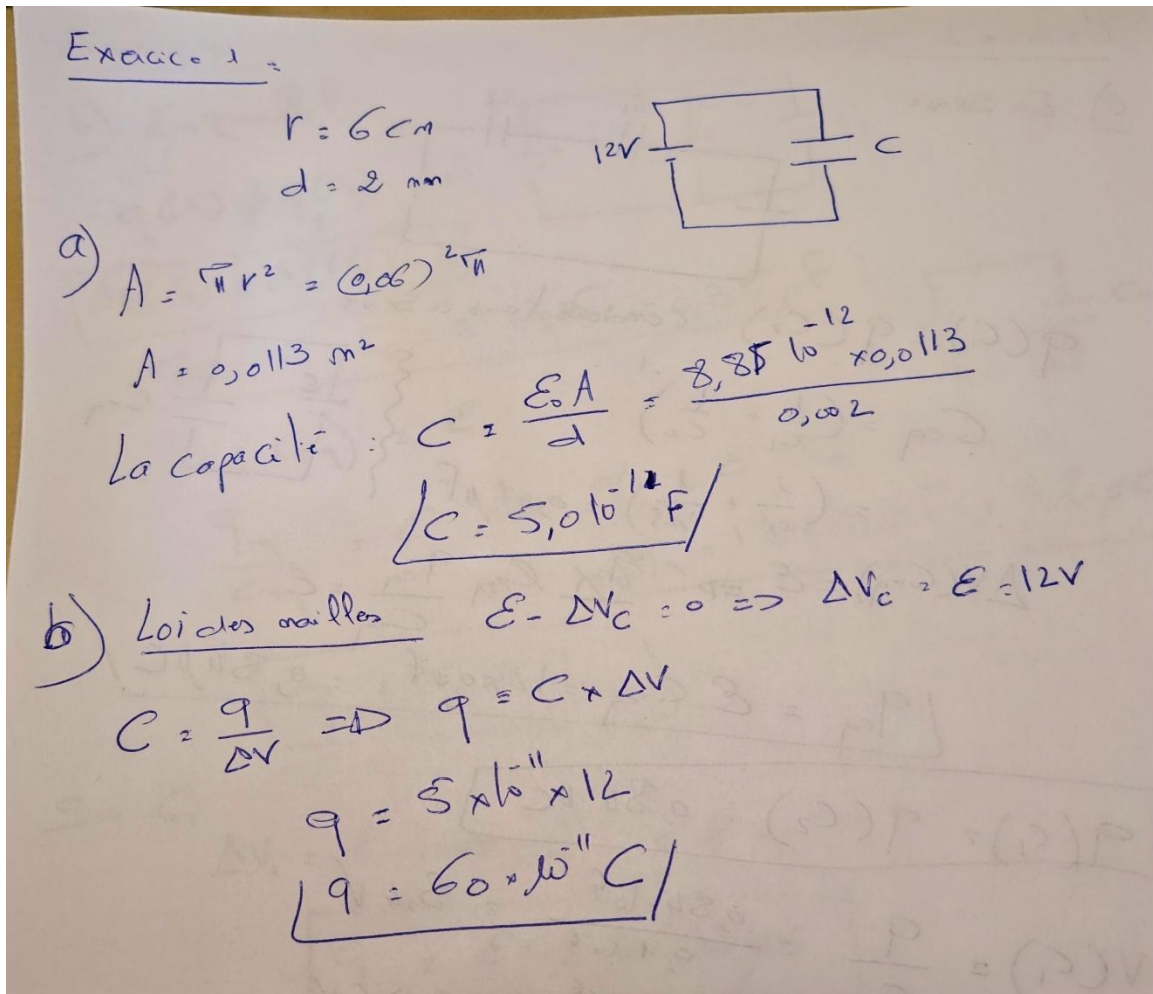 Exercice 1 :
r = 6 cm
d = 2 mm
12V
C
a) A = π r² = (0,06)² π
A = 0,0113 m²
La capacité : C = ε₀ A / d = 8,85 10⁻¹² × 0,0113 / 0,002
C = 5,0 10⁻¹¹ F
b) Loi des mailles ε - ΔV_C = 0 => ΔV_C = ε = 12V
C = q / ΔV => q = C × ΔV
q = 5 × 10⁻¹¹ × 12
q = 60 × 10⁻¹¹ C